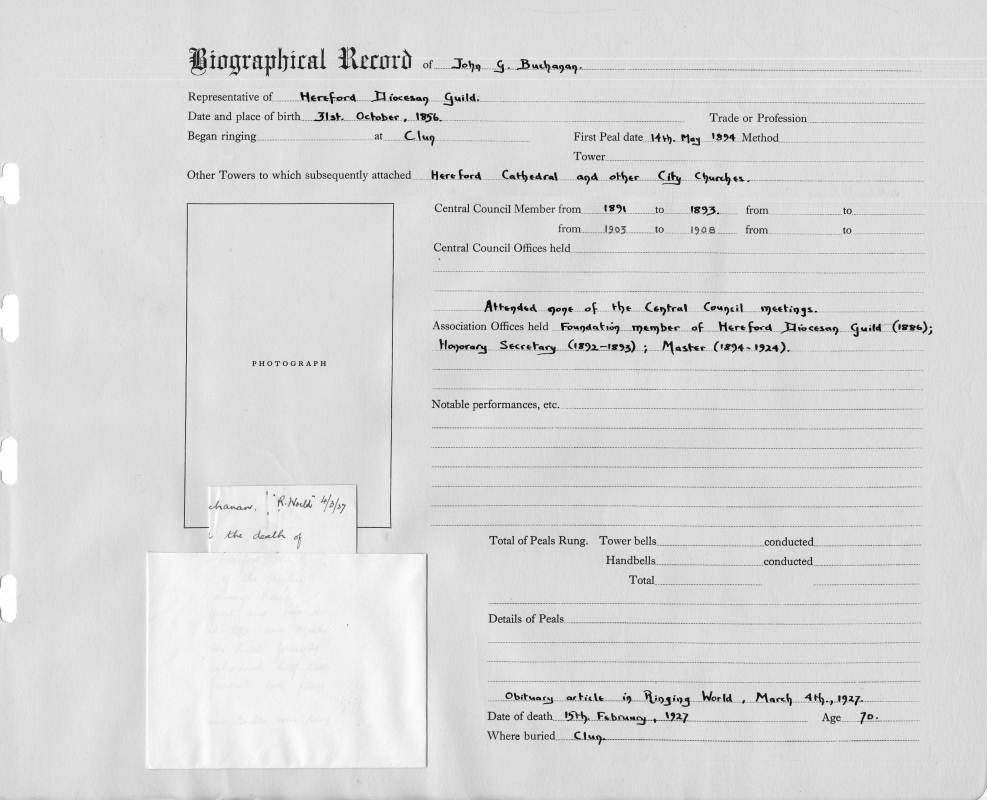 Biographical Record of John G. Buchanan.
Representative of Hereford Diocesan Guild.
Date and place of birth 31st. October, 1856. Trade or Profession
Began ringing at Clun First Peal date 14th. May 1894 Method
Tower
Other Towers to which subsequently attached Hereford Cathedral and other City Churches.
Central Council Member from 1891 to 1893. from to
from 1903 to 1908 from to
Central Council Offices held
Attended none of the Central Council meetings.
Association Offices held Foundation member of Hereford Diocesan Guild (1886);
Honorary Secretary (1892-1893); Master (1894-1924).
PHOTOGRAPH
Notable performances, etc.
chanan. "R. World" 4/3/27
the death of
Total of Peals Rung. Tower bells conducted
Handbells conducted
Total
Details of Peals
Obituary article in Ringing World, March 4th., 1927.
Date of death 15th. February, 1927 Age 70.
Where buried Clun.